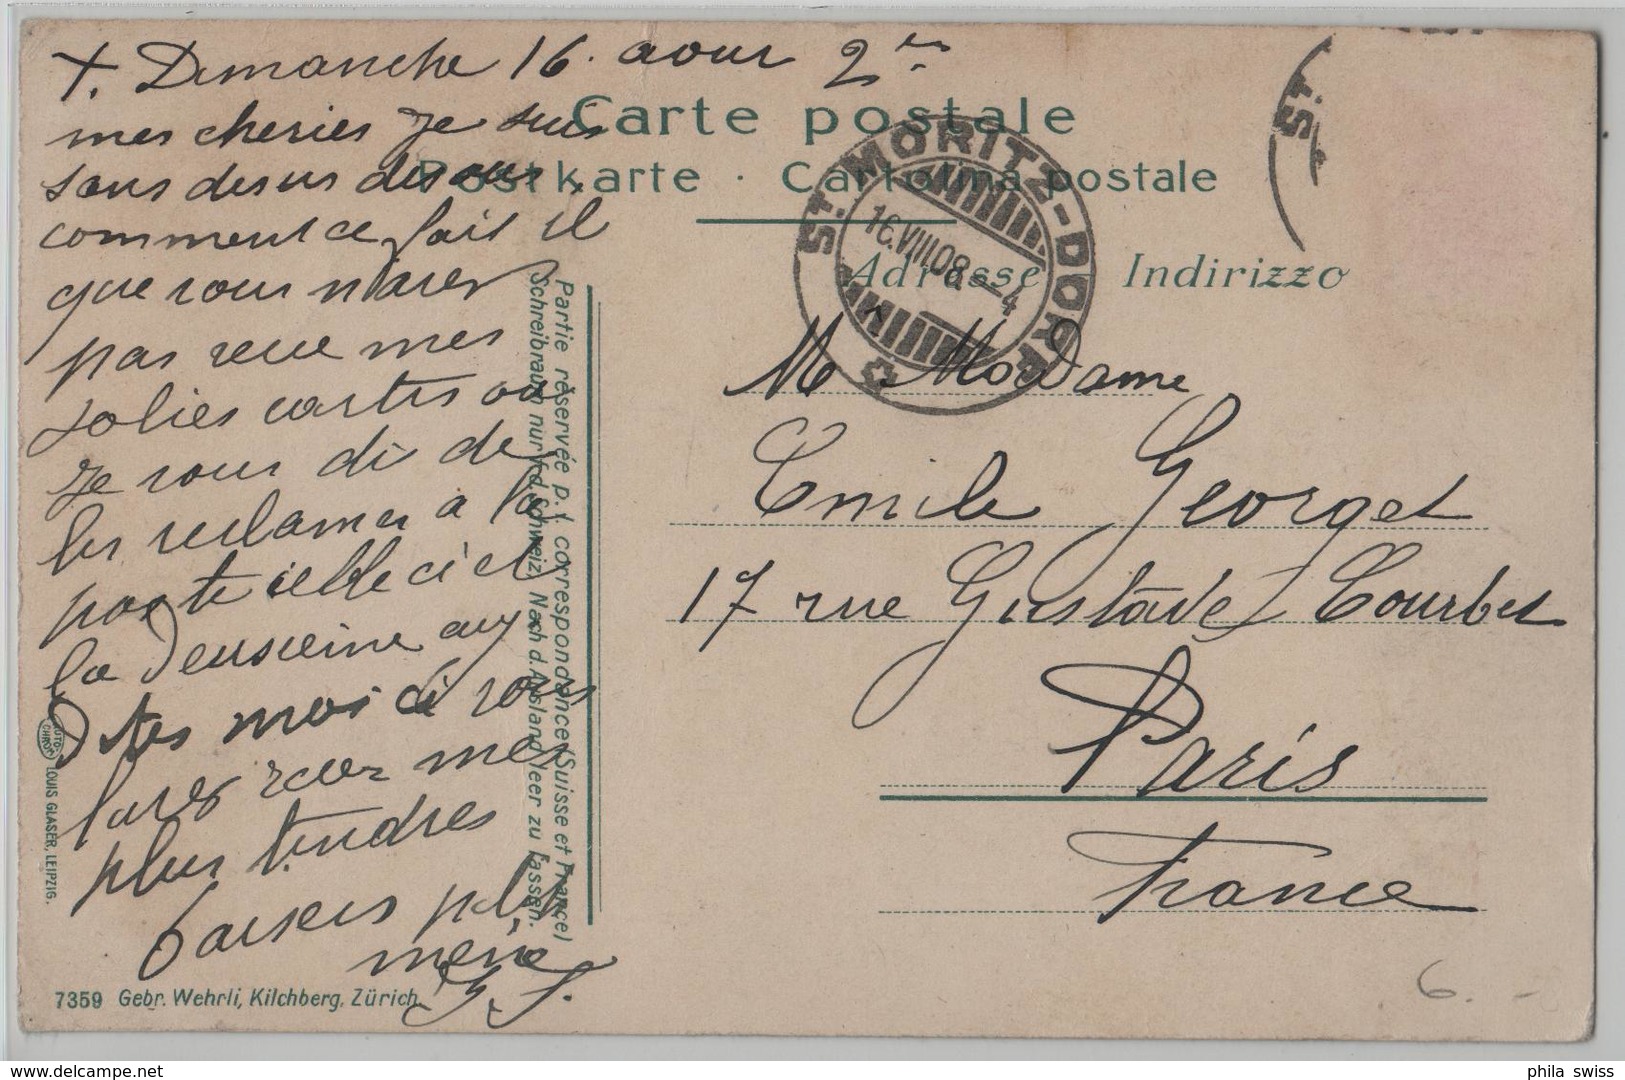 +. Dimanche 16. aour 2es
mes cheries je suis
sans desus desous.
comment ce fait il
que vous n'avez
pas reue mes
jolies cartes ou
je vous di de
les reclamer à la
poste celle ci et
la deusieime
Dites moi ci vous
lavez recus mes
plus tendres
baisers
G. J.
Carte postale
Postkarte · Cartolina postale
Adresse Indirizzo
ST. MORITZ-DORF
16.VIII.08.-4
ST.
M Madame
Emile Georget
17 rue Gustave Courbet
Paris
France
Partie réservée p. l. correspondance (Suisse et France)
Schreibraum nur f. d. Schweiz. Nach d. Ausland leer zu lassen.
AUTO-CHROM
LOUIS GLASER, LEIPZIG.
7359 Gebr. Wehrli, Kilchberg, Zürich.
6.-
www.delcampe.net
phila_swiss